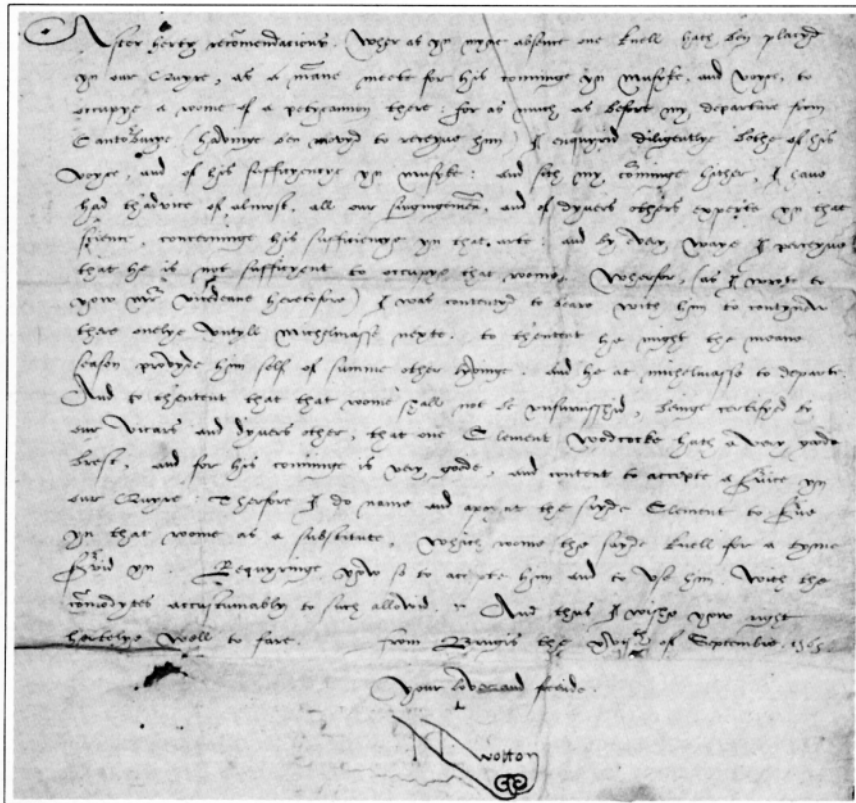 After herty recomendacions. Wher as yn myne absence one Luell hath ben placyd
yn our Quyre, as a mane meete for his conninge yn musyke, and voyce, to
occupye a rome of a petycannon there: for as much as before my departure from
Cantorburye (havinge ben movyd to receyve him) I enquyrid diligentlye bothe of his
voyce, and of his suffycyencye yn musyke: and sith my cominge hither, I have
had th'advice of almost, all our singingemen, and of dyvers others experte yn that
science, concerninge his sufficiencye yn that arte: and by every waye I perceyve
that he is not sufficyent to occupye that rome. Wherfor, (as I wrote to
yow mr vicedeane heretofore) I was contentyd to beare with him to contynew
there onelye untyll michelmasse nexte. to th'entent he might the meane
season provyde him self of summe other thinge. and he at michelmasse to departe.
And to th'entent that that rome shall not be unfurnisshid, beinge certifyed by
our vicars and dyvers other, that one Clement Wodcocke hath a very goode
brest, and for his conninge is very goode, and content to accepte a service yn
our Quyre: Therfore I do name and apoynt the sayde Clement to serve
yn that rome as a substitute, which rome the sayde Luell for a tyme
servid yn. Requyringe yow so to accepte him and to use him, with the
comodytes accustumably to such allowid. And thus I wishe yow right
hertelye well to fare. From Brugis the of Septembre. 1565
Your loves and freinde.
N Wotton